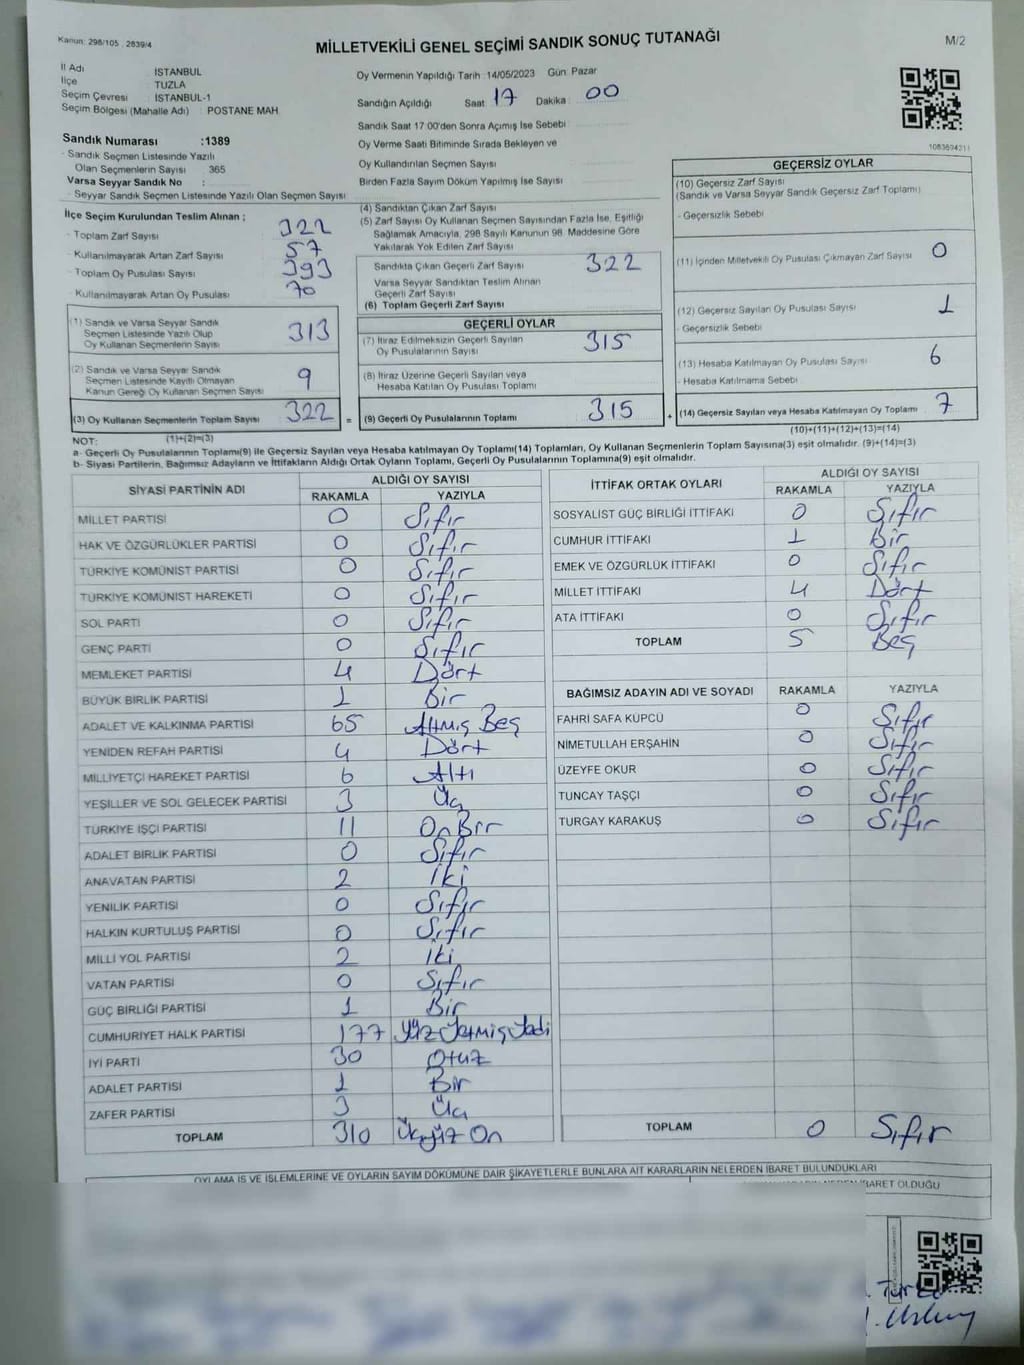 Kanun: 298/105 , 2839/4
MİLLETVEKİLİ GENEL SEÇİMİ SANDIK SONUÇ TUTANAĞI
M/2
İl Adı İSTANBUL
İlçe TUZLA
Seçim Çevresi İSTANBUL-1
Seçim Bölgesi (Mahalle Adı) : POSTANE MAH
Oy Vermenin Yapıldığı Tarih : 14/05/2023 Gün Pazar
Sandığın Açıldığı Saat : 17 Dakika : 00
Sandık Saat 17:00'den Sonra Açımış İse Sebebi
Oy Verme Saati Bitiminde Sırada Bekleyen ve
Oy Kullandırılan Seçmen Sayısı
Birden Fazla Sayım Döküm Yapılmış İse Sayısı
1083694311
Sandık Numarası :1389
- Sandık Seçmen Listesinde Yazılı
Olan Seçmenlerin Sayısı 365
Varsa Seyyar Sandık No :
- Seyyar Sandık Seçmen Listesinde Yazılı Olan Seçmen Sayısı
İlçe Seçim Kurulundan Teslim Alınan ;
- Toplam Zarf Sayısı 322
- Kullanılmayarak Artan Zarf Sayısı 57
- Toplam Oy Pusulası Sayısı 393
- Kullanılmayarak Artan Oy Pusulası 70
(1) Sandık ve Varsa Seyyar Sandık
Seçmen Listesinde Yazılı Olup
Oy Kullanan Seçmenlerin Sayısı 313
(2) Sandık ve Varsa Seyyar Sandık
Seçmen Listesinde Kayıtlı Olmayan
Kanun Gereği Oy Kullanan Seçmen Sayısı 9
(3) Oy Kullanan Seçmenlerin Toplam Sayısı 322 =
(1)+(2)=(3)
(4) Sandıktan Çıkan Zarf Sayısı
(5) Zarf Sayısı Oy Kullanan Seçmen Sayısından Fazla İse, Eşitliği
Sağlamak Amacıyla, 298 Sayılı Kanunun 98. Maddesine Göre
Yakılarak Yok Edilen Zarf Sayısı
Sandıkta Çıkan Geçerli Zarf Sayısı 322
Varsa Seyyar Sandıktan Teslim Alınan
Geçerli Zarf Sayısı
(6) Toplam Geçerli Zarf Sayısı
GEÇERLİ OYLAR
(7) İtiraz Edilmeksizin Geçerli Sayılan
Oy Pusulalarının Sayısı 315
(8) İtiraz Üzerine Geçerli Sayılan veya
Hesaba Katılan Oy Pusulası Toplamı
(9) Geçerli Oy Pusulalarının Toplamı 315 +
GEÇERSİZ OYLAR
(10) Geçersiz Zarf Sayısı
(Sandık ve Varsa Seyyar Sandık Geçersiz Zarf Toplamı)
- Geçersizlik Sebebi
(11) İçinden Milletvekili Oy Pusulası Çıkmayan Zarf Sayısı 0
(12) Geçersiz Sayılan Oy Pusulası Sayısı 1
- Geçersizlik Sebebi
(13) Hesaba Katılmayan Oy Pusulası Sayısı 6
- Hesaba Katılmama Sebebi
(14) Geçersiz Sayılan veya Hesaba Katılmayan Oy Toplamı 7
(10)+(11)+(12)+(13)=(14)
NOT:
a- Geçerli Oy Pusulalarının Toplamı(9) ile Geçersiz Sayılan veya Hesaba katılmayan Oy Toplamı(14) Toplamları, Oy Kullanan Seçmenlerin Toplam Sayısına(3) eşit olmalıdır. (9)+(14)=(3)
b- Siyasi Partilerin, Bağımsız Adayların ve İttifakların Aldığı Ortak Oyların Toplamı, Geçerli Oy Pusulalarının Toplamına(9) eşit olmalıdır.
SİYASİ PARTİNİN ADI ALDIĞI OY SAYISI
RAKAMLA YAZIYLA
MİLLET PARTİSİ 0 Sıfır
HAK VE ÖZGÜRLÜKLER PARTİSİ 0 Sıfır
TÜRKİYE KOMÜNİST PARTİSİ 0 Sıfır
TÜRKİYE KOMÜNİST HAREKETİ 0 Sıfır
SOL PARTİ 0 Sıfır
GENÇ PARTİ 0 Sıfır
MEMLEKET PARTİSİ 4 Dört
BÜYÜK BİRLİK PARTİSİ 1 Bir
ADALET VE KALKINMA PARTİSİ 65 Altmış Beş
YENİDEN REFAH PARTİSİ 4 Dört
MİLLİYETÇİ HAREKET PARTİSİ 6 Altı
YEŞİLLER VE SOL GELECEK PARTİSİ 3 Üç
TÜRKİYE İŞÇİ PARTİSİ 11 On Bir
ADALET BİRLİK PARTİSİ 0 Sıfır
ANAVATAN PARTİSİ 2 İki
YENİLİK PARTİSİ 0 Sıfır
HALKIN KURTULUŞ PARTİSİ 0 Sıfır
MİLLİ YOL PARTİSİ 2 İki
VATAN PARTİSİ 0 Sıfır
GÜÇ BİRLİĞİ PARTİSİ 1 Bir
CUMHURİYET HALK PARTİSİ 177 Yüz Yetmiş Yedi
İYİ PARTİ 30 Otuz
ADALET PARTİSİ 1 Bir
ZAFER PARTİSİ 3 Üç
TOPLAM 310 Üçyüz On
İTTİFAK ORTAK OYLARI ALDIĞI OY SAYISI
RAKAMLA YAZIYLA
SOSYALİST GÜÇ BİRLİĞİ İTTİFAKI 0 Sıfır
CUMHUR İTTİFAKI 1 Bir
EMEK VE ÖZGÜRLÜK İTTİFAKI 0 Sıfır
MİLLET İTTİFAKI 4 Dört
ATA İTTİFAKI 0 Sıfır
TOPLAM 5 Beş
BAĞIMSIZ ADAYIN ADI VE SOYADI RAKAMLA YAZIYLA
FAHRİ SAFA KÜPCÜ 0 Sıfır
NİMETULLAH ERŞAHİN 0 Sıfır
ÜZEYFE OKUR 0 Sıfır
TUNCAY TAŞÇI 0 Sıfır
TURGAY KARAKUŞ 0 Sıfır
TOPLAM 0 Sıfır
OYLAMA İŞ VE İŞLEMLERİNE VE OYLARIN SAYIM DÖKÜMÜNE DAİR ŞİKAYETLERLE BUNLARA AİT KARARLARIN NELERDEN İBARET BULUNDUKLARI
NEDEN İBARET OLDUĞU